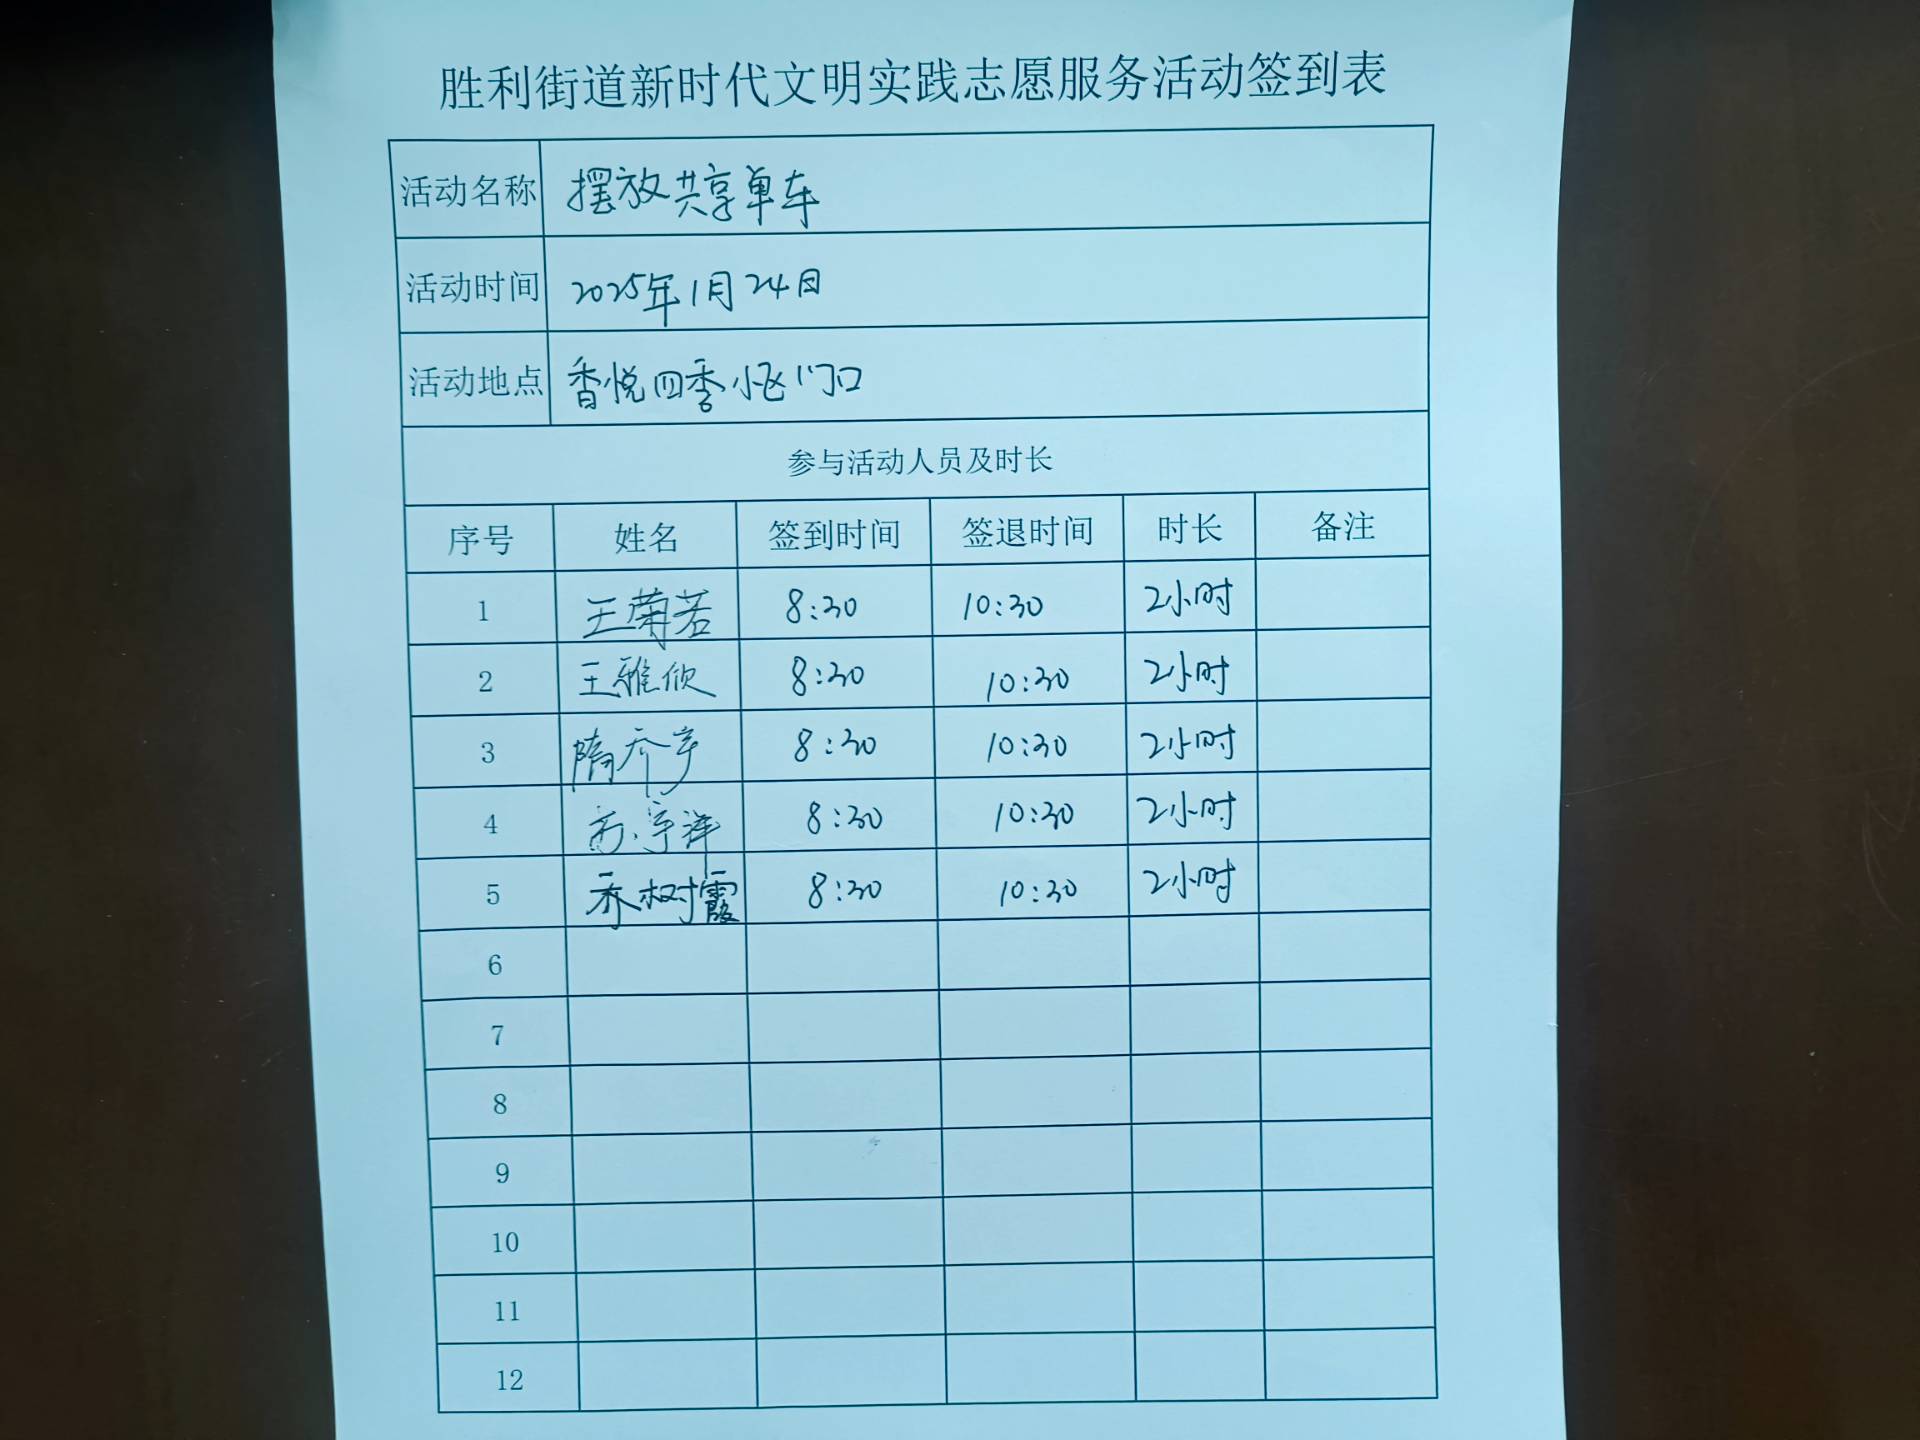 胜利街道新时代文明实践志愿服务活动签到表
活动名称 摆放共享单车
活动时间 2025年1月24日
活动地点 香悦四季小区门口
参与活动人员及时长
序号 姓名 签到时间 签退时间 时长 备注
1 王菊若 8:30 10:30 2小时
2 王雅欣 8:30 10:30 2小时
3 隋乔宇 8:30 10:30 2小时
4 宇洋 8:30 10:30 2小时
5 乔树霞 8:30 10:30 2小时
6
7
8
9
10
11
12